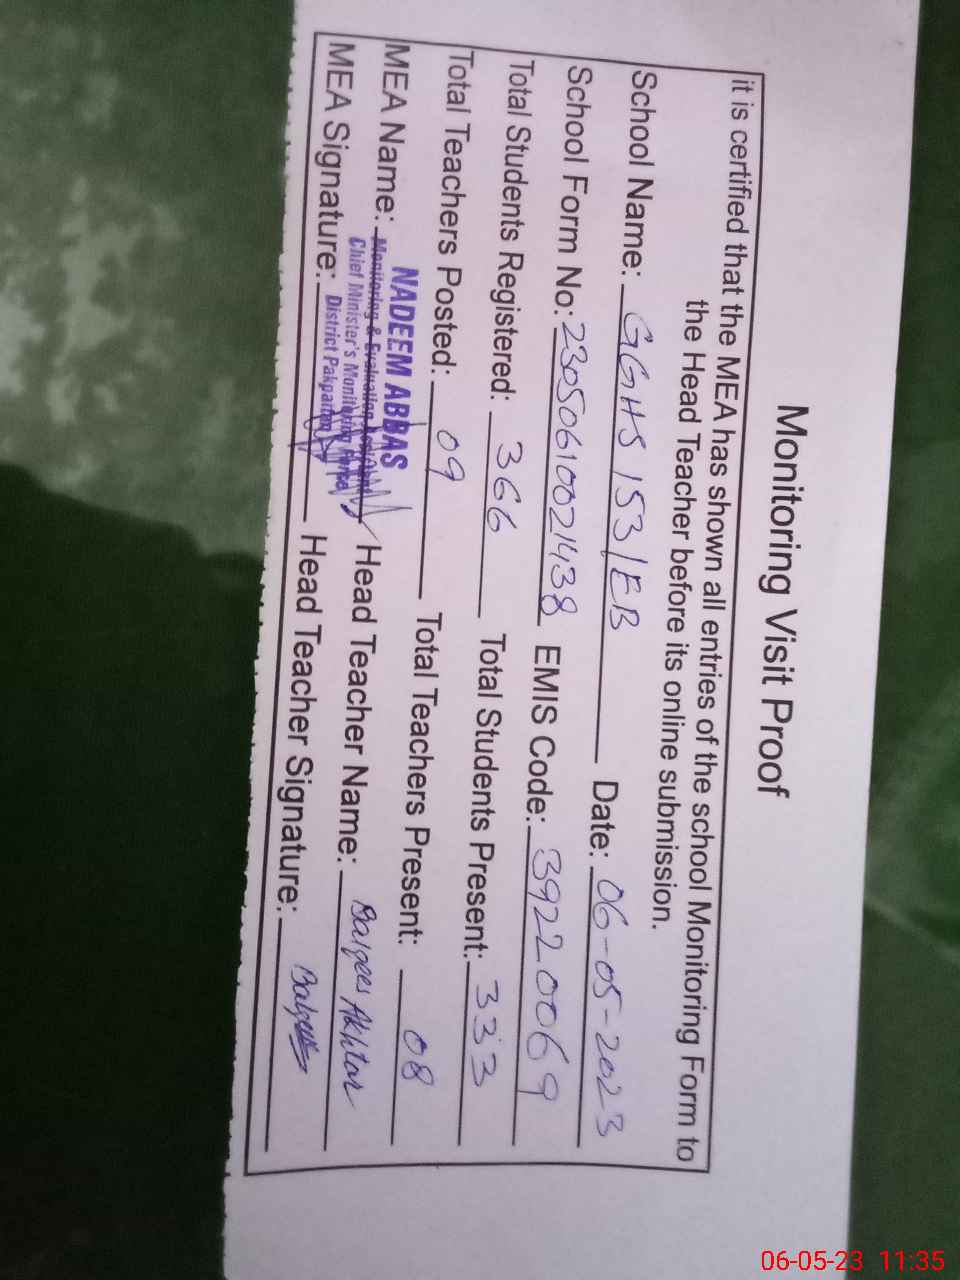 Monitoring Visit Proof
it is certified that the MEA has shown all entries of the school Monitoring Form to
the Head Teacher before its online submission.
School Name: GGHS 153/EB Date: 06-05-2023
School Form No: 23050610021438 EMIS Code: 39220069
Total Students Registered: 366 Total Students Present: 333
Total Teachers Posted: 09 Total Teachers Present: 08
NADEEM ABBAS
MEA Name: Monitoring & Evaluation Head Teacher Name: Balqees Akhtar
Chief Minister's Monitoring Force
MEA Signature: District Pakpattan Head Teacher Signature: Balqees
06-05-23 11:35